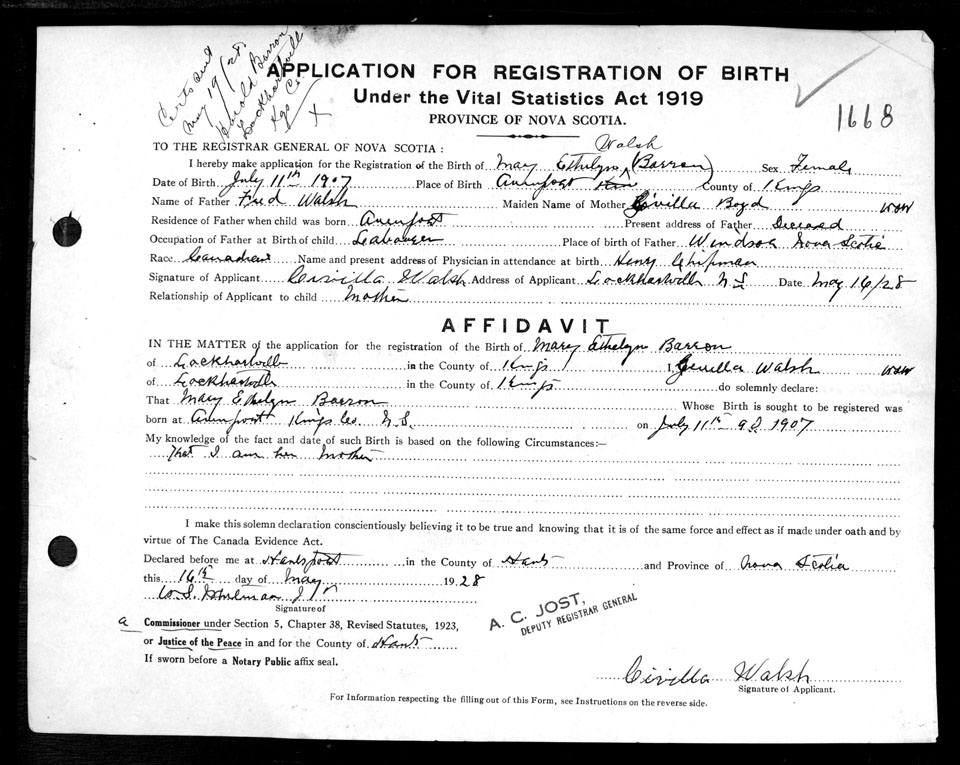 Cert sent
May 19/28.
Harold Barron
Lockhartville
Kgs Co
X
APPLICATION FOR REGISTRATION OF BIRTH
Under the Vital Statistics Act 1919
PROVINCE OF NOVA SCOTIA.
1668
TO THE REGISTRAR GENERAL OF NOVA SCOTIA :
Walsh
I hereby make application for the Registration of the Birth of Mary Ethelyn (Barron) Sex Female
Date of Birth July 11th 1907 Place of Birth Avonport County of Kings
Name of Father Fred Walsh Maiden Name of Mother Civilla Boyd
Residence of Father when child was born Avonport Present address of Father Deceased
Occupation of Father at Birth of child Place of birth of Father Windsor Nova Scotia
Race Canadian Name and present address of Physician in attendance at birth Henry Chipman
Signature of Applicant Civilla Walsh Address of Applicant Lockhartville N S Date May 16/28
Relationship of Applicant to child Mother
AFFIDAVIT
IN THE MATTER of the application for the registration of the Birth of Mary Ethelyn Barron
of Lockhartville in the County of Kings I, Walsh
of Lockhartville in the County of Kings do solemnly declare:
That Mary Ethelyn Barron Whose Birth is sought to be registered was
born at Avonport Kings Co. N.S. on July 11th A.D. 1907
My knowledge of the fact and date of such Birth is based on the following Circumstances:—
That I am her Mother
I make this solemn declaration conscientiously believing it to be true and knowing that it is of the same force and effect as if made under oath and by
virtue of The Canada Evidence Act.
Declared before me at Hantsport in the County of Hants and Province of Nova Scotia
this 16th day of May 1928
Signature of
a Commissioner under Section 5, Chapter 38, Revised Statutes, 1923,
or Justice of the Peace in and for the County of Hants
If sworn before a Notary Public affix seal.
A. C. JOST,
DEPUTY REGISTRAR GENERAL
Civilla Walsh
Signature of Applicant.
For Information respecting the filling out of this Form, see Instructions on the reverse side.